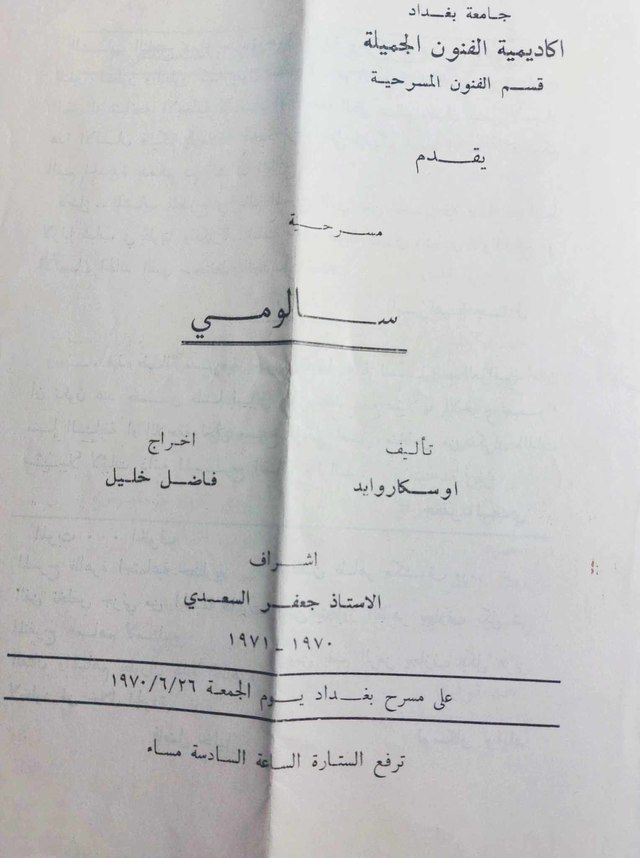 جامعة بغداد
اكاديمية الفنون الجميلة
قسم الفنون المسرحية
يقدم
مسرحية
سالومي
تأليف
اخراج
اوسكار وايد
فاضل خليل
اشراف
الاستاذ جعفر السعدي
١٩٧٠ - ١٩٧١
على مسرح بغداد يوم الجمعة ١٩٧٠/٦/٢٦
ترفع الستارة الساعة السادسة مساء